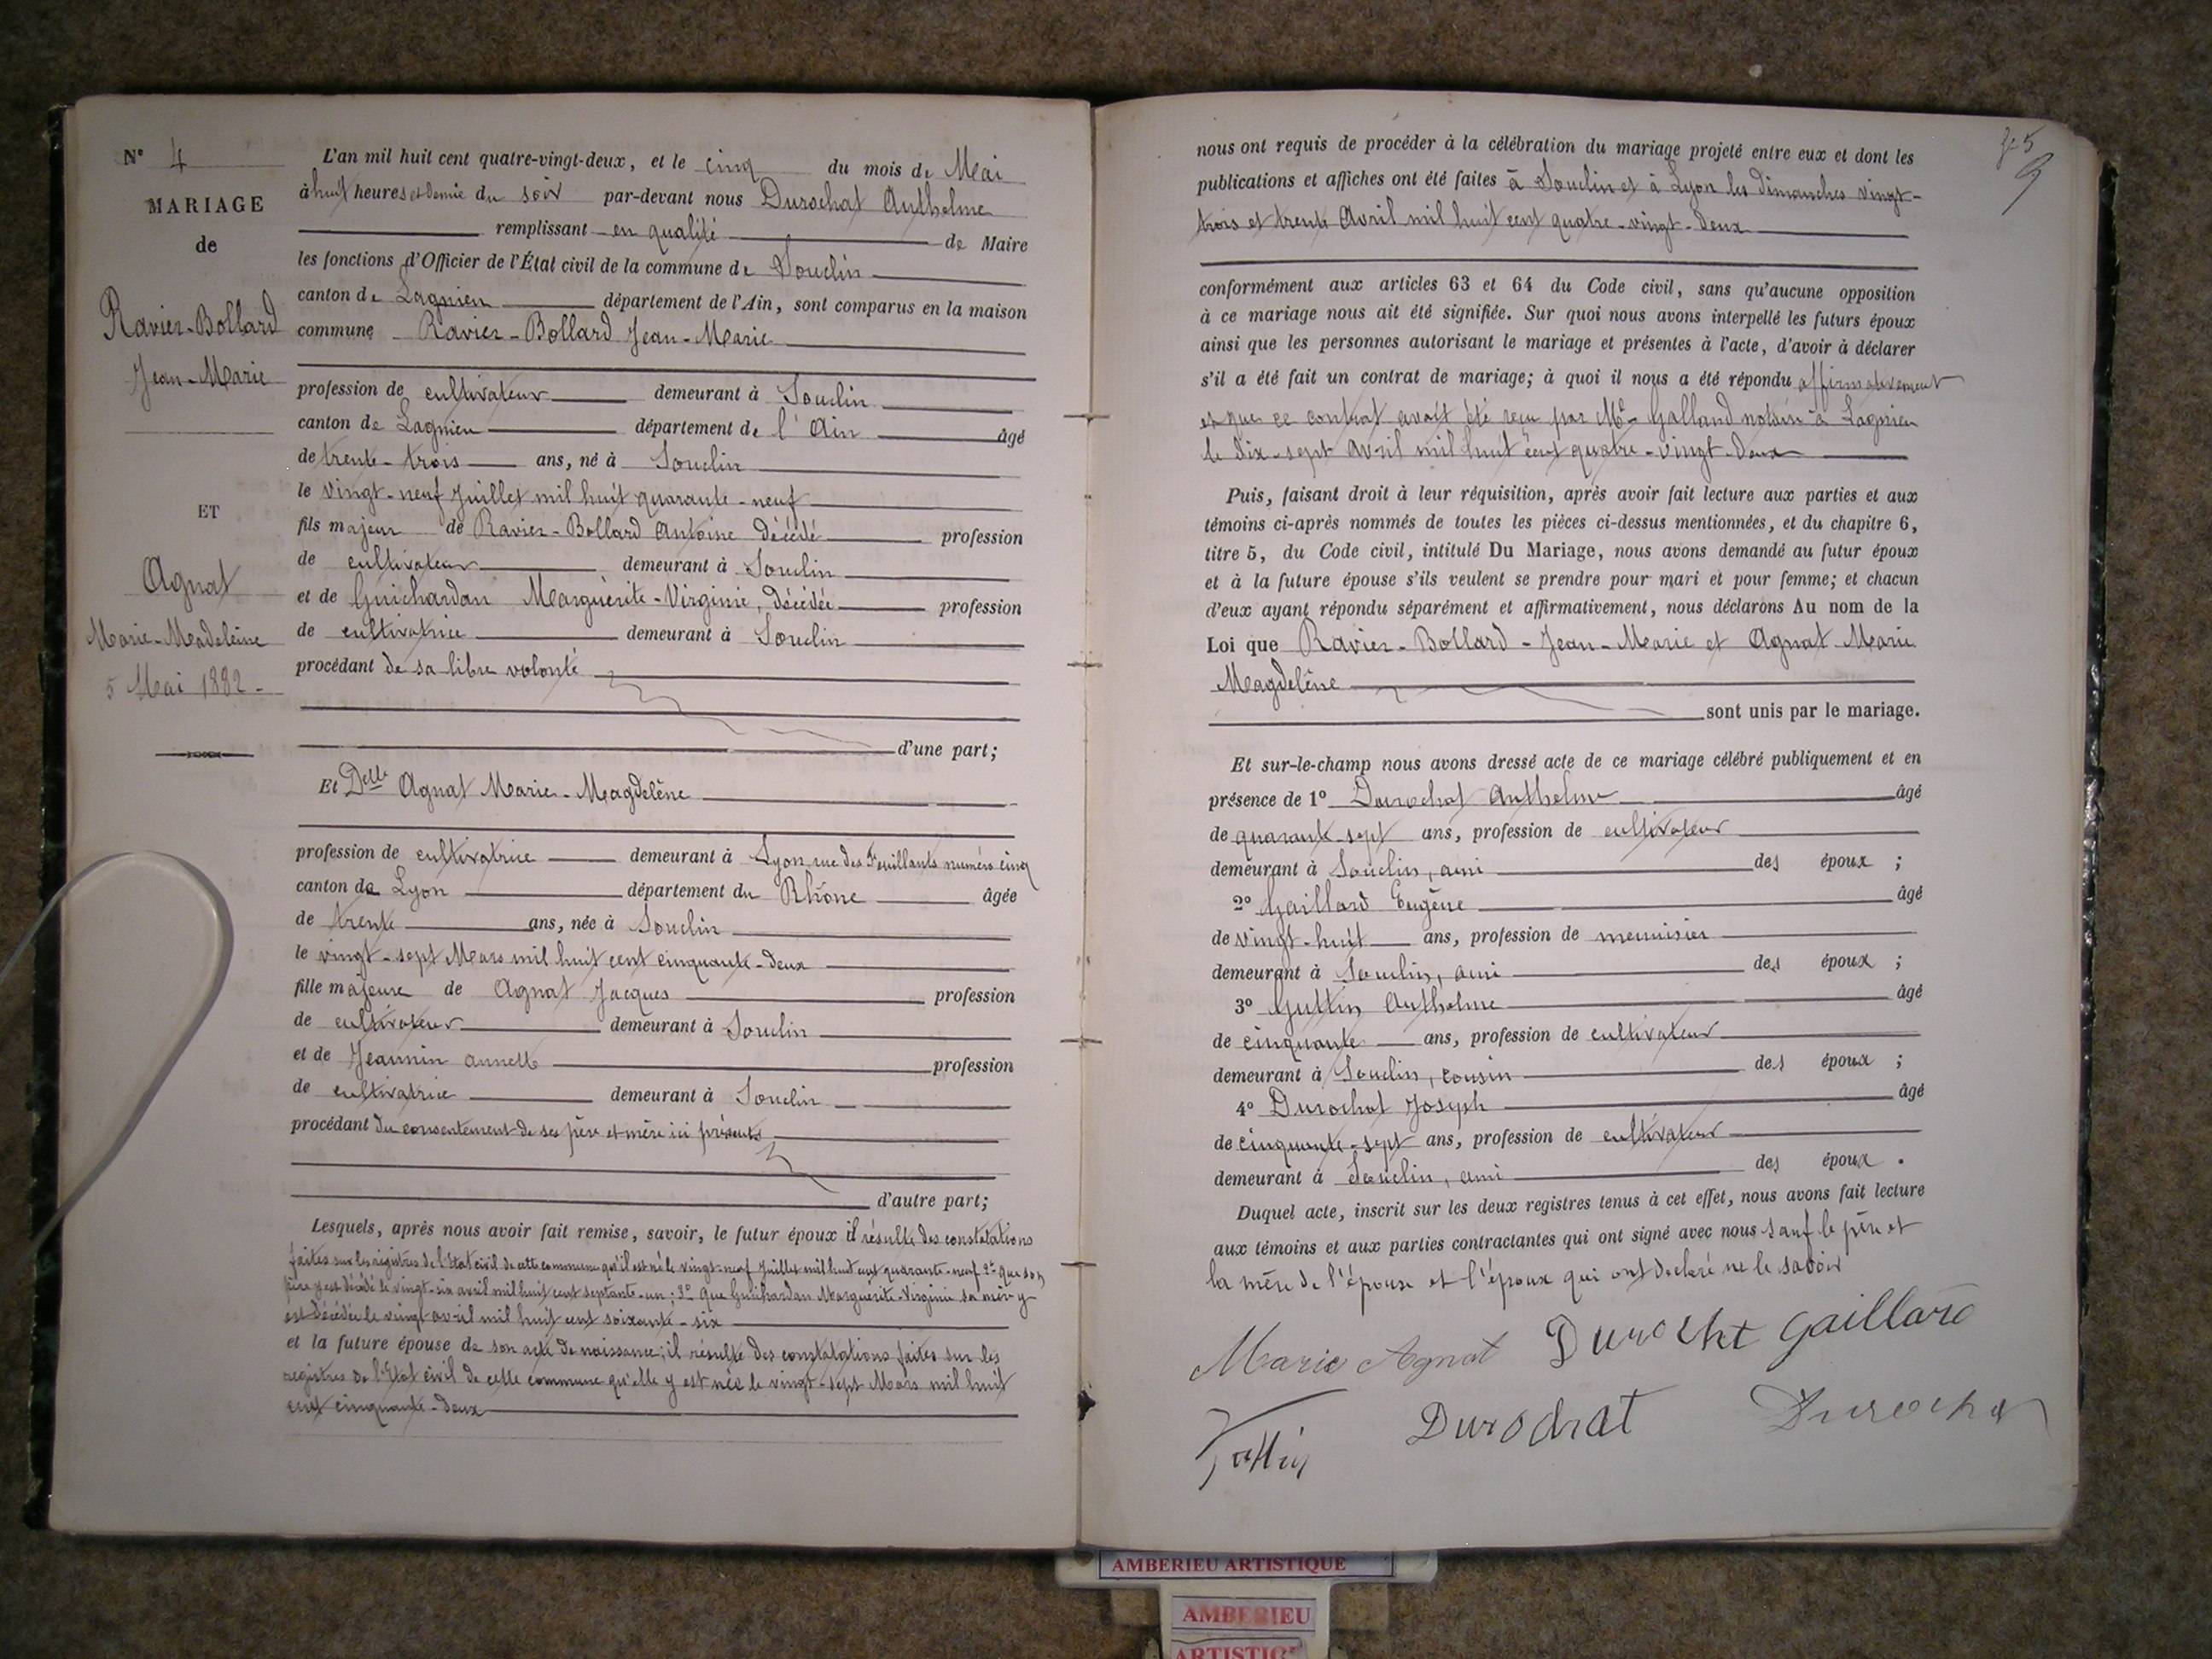 N° 4
MARIAGE
de
Ravier-Bollard
Jean-Marie
ET
Agnat
Marie-Madeleine
5 Mai 1882 -
L'an mil huit cent quatre-vingt-deux, et le cinq du mois de Mai
à huit heures et demie du soir par-devant nous Durochat Anthelme
remplissant en qualité de Maire
les fonctions d'Officier de l'État civil de la commune de Souclin
canton de Lagnieu département de l'Ain, sont comparus en la maison
commune Ravier-Bollard Jean-Marie
profession de cultivateur demeurant à Souclin
canton de Lagnieu département de l'Ain âgé
de trente-trois ans, né à Souclin
le vingt-neuf Juillet mil huit quarante-neuf
fils majeur de Ravier-Bollard Antoine décédé profession
de cultivateur demeurant à Souclin
et de Guichardan Marguerite-Virginie, décédée profession
de cultivatrice demeurant à Souclin
procédant de sa libre volonté
d'une part;
Et Delle Agnat Marie-Magdelène
profession de cultivatrice demeurant à Lyon rue des Feuillants numéro cinq
canton de Lyon département du Rhône âgée
de trente ans, née à Souclin
le vingt-sept Mars mil huit cent cinquante-deux
fille majeure de Agnat Jacques profession
de cultivateur demeurant à Souclin
et de Jeannin annette profession
de cultivatrice demeurant à Souclin
procédant du consentement de ses père et mère ici présents
d'autre part;
Lesquels, après nous avoir fait remise, savoir, le futur époux il résulte des constatations
faites sur les registres de l'Etat civil de cette commune qu'il est né le vingt-neuf Juillet mil huit cent quarante-neuf 2° que son
père y est décédé le vingt-six avril mil huit cent septante-un; 3° que Guichardan Marguerite-Virginie sa mère y
est décédée le vingt avril mil huit cent soixante-six
et la future épouse de son acte de naissance; il résulte des constatations faites sur les
registres de l'Etat civil de cette commune qu'elle y est née le vingt-sept Mars mil huit
cent cinquante-deux
nous ont requis de procéder à la célébration du mariage projeté entre eux et dont les
publications et affiches ont été faites à Souclin et à Lyon les dimanches vingt-
trois et trente Avril mil huit cent quatre-vingt-deux
conformément aux articles 63 et 64 du Code civil, sans qu'aucune opposition
à ce mariage nous ait été signifiée. Sur quoi nous avons interpellé les futurs époux
ainsi que les personnes autorisant le mariage et présentes à l'acte, d'avoir à déclarer
s'il a été fait un contrat de mariage; à quoi il nous a été répondu affirmativement
et que ce contrat avait été reçu par Me Galland notaire à Lagnieu
le dix-sept avril mil huit cent quatre-vingt-deux
Puis, faisant droit à leur réquisition, après avoir fait lecture aux parties et aux
témoins ci-après nommés de toutes les pièces ci-dessus mentionnées, et du chapitre 6,
titre 5, du Code civil, intitulé Du Mariage, nous avons demandé au futur époux
et à la future épouse s'ils veulent se prendre pour mari et pour femme; et chacun
d'eux ayant répondu séparément et affirmativement, nous déclarons Au nom de la
Loi que Ravier-Bollard-Jean-Marie et Agnat Marie
Magdelène
sont unis par le mariage.
Et sur-le-champ nous avons dressé acte de ce mariage célébré publiquement et en
présence de 1° Durochat Anthelme âgé
de quarante-sept ans, profession de cultivateur
demeurant à Souclin, ami des époux ;
2° Gaillard Eugène âgé
de vingt-huit ans, profession de menuisier
demeurant à Souclin, ami des époux ;
3° Guttin Anthelme âgé
de cinquante ans, profession de cultivateur
demeurant à Souclin, cousin des époux ;
4° Durochat Joseph âgé
de cinquante-sept ans, profession de cultivateur
demeurant à Souclin, ami des époux .
Duquel acte, inscrit sur les deux registres tenus à cet effet, nous avons fait lecture
aux témoins et aux parties contractantes qui ont signé avec nous sauf le père et
la mère de l'épouse et l'époux qui ont déclaré ne le savoir
Marie Agnat Durochat Gaillard
Durochat Durochat
AMBERIEU ARTISTIQUE
AMBERIEU
ARTISTIQ